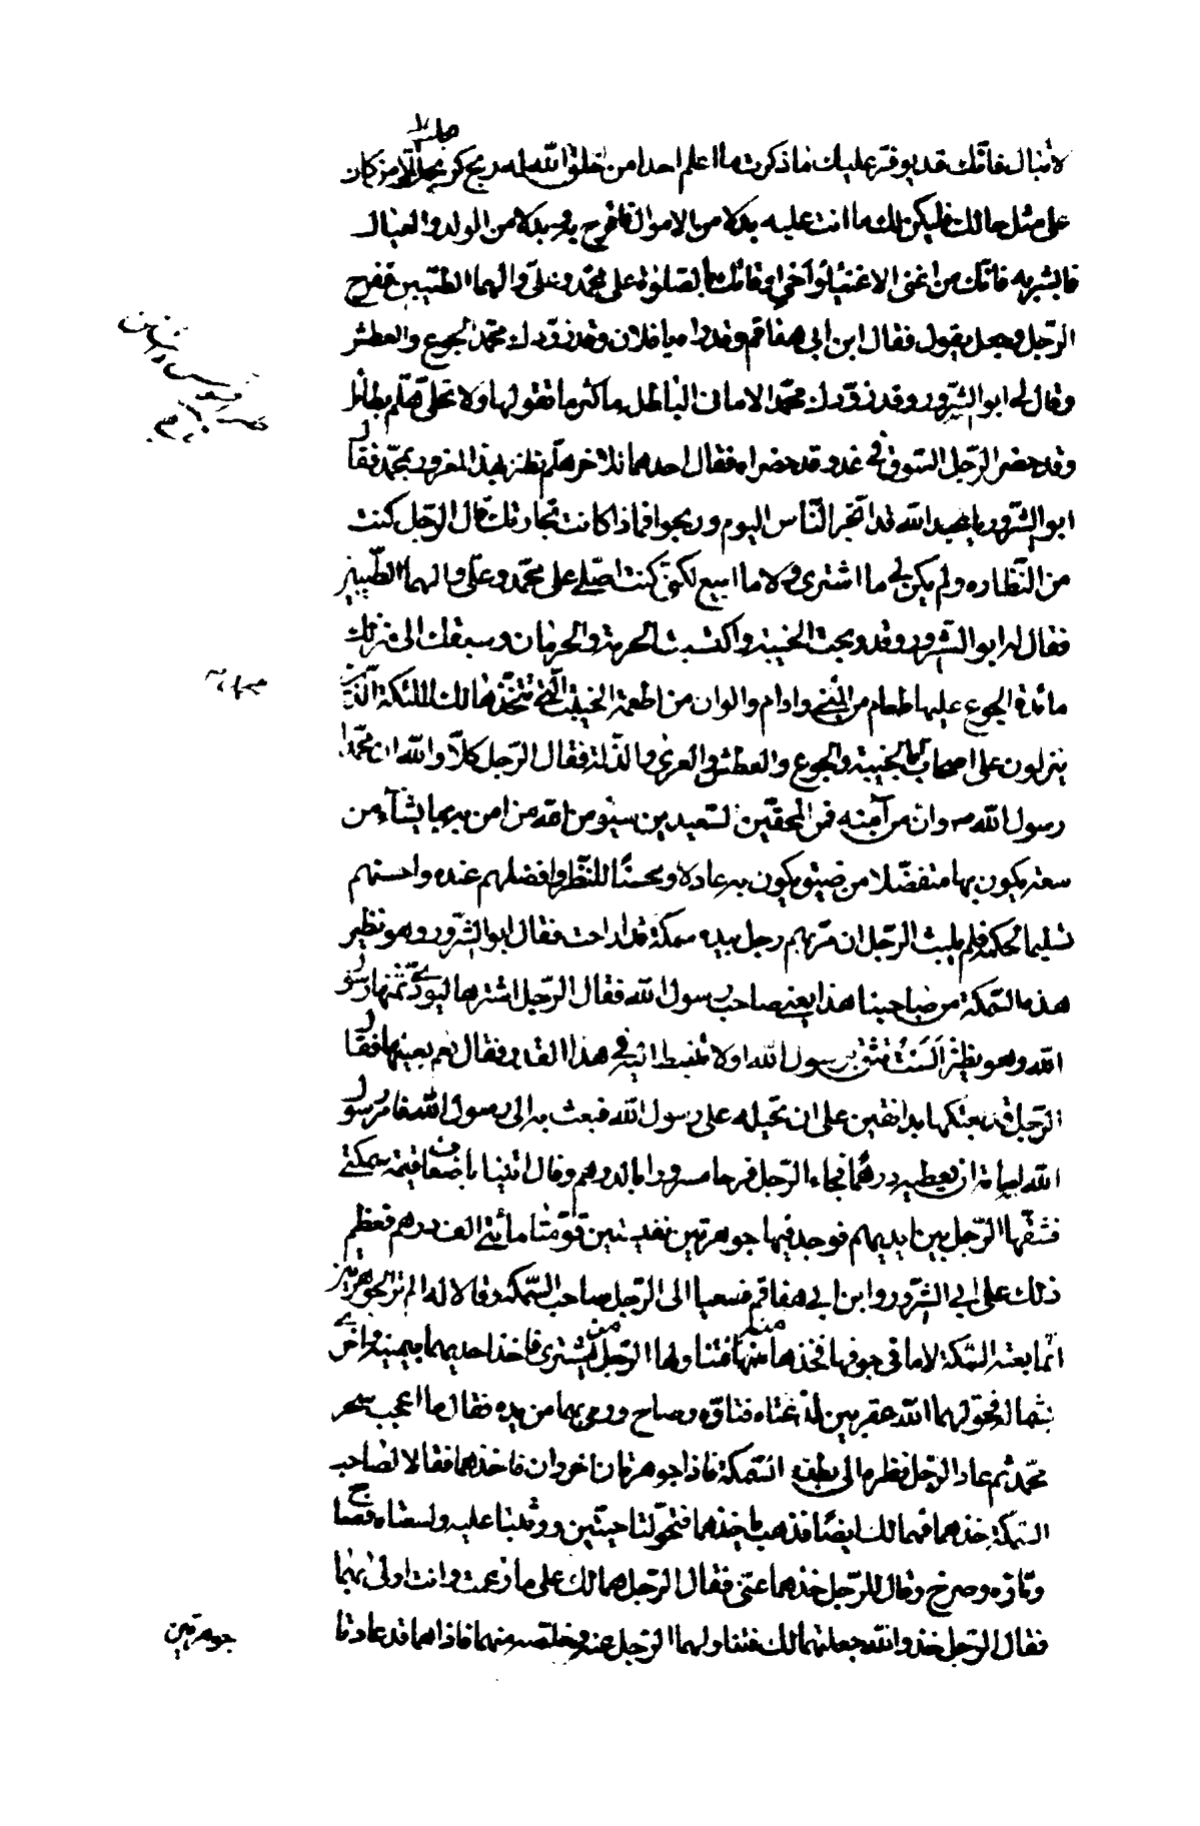 لا تبال فانك قد يوفر عليك فما ذكرت ما اعلم احدا من خلق الله له ربح كربحك الا من كان
على مثل حالك فليكن لك ما انت عليه بدلا من الاموال فافرح به وبدلا من الولد والعيال
فابشر به فانك من اغنى الاغنياء وأحي اوقاتك بالصلوة على محمد وعلى والهما الطيبين ففرح
الرجل وجعل يقول فقال ابن ابي هفاقم وقد راه يا فلان وقد زودك محمد الجوع والعطش
وقال له ابو الشرور وقد زودك محمد الاماني الباطلة ما كثر ما تقولها ولا تحلى بطائل
وقد حضر الرجل السوق في غد وقد حضراه فقال احدهما للاخر هلم نطنز بهذا المغرور بمحمد فقال
ابو الشرور يا عبد الله قد اتجر الناس اليوم وربحوا فماذا كانت تجارتك قال الرجل كنت
من النظاره ولم يكن لي ما اشترى ولا ما ابيع لكني كنت اصلى على محمد وعلى والهما الطيبين
فقال له ابو الشرور وقد ربحت الخيبة واكتسبت الحرمة والحرمان وسبقك الى منزلك
مائدة الجوع عليها طعام من المنى وادام والوان من اطعمة الخيبة التي تتخذها لك الملئكة الذين
ينزلون على اصحاب محمد بالخيبة والجوع والعطش والعرى والذلة فقال الرجل كلا والله ان محمدا
رسول الله وان من آمن به فمن المحقين السعيدين سيؤمن الله من امن به بما يشاء من
سعة يكون بها متفضلا من ضيق يكون به عادلا ومحسنا للنظر وافضلهم عنده واحسنهم
تسليما لحكمه فلم يلبث الرجل ان مر بهم رجل بيده سمكة قد اراحت فقال ابو الشرور وهو يطنز
هذه السمكة من صاحبنا هذا يعنى صاحب رسول الله فقال الرجل اشترها ليؤدى ثمنها رسول
الله وهو يطنز الست تثق برسول الله اولا تنبسط اليه في هذا القدر فقال نعم بعنيها فقال
الرجل قد بعتكها بدانقين على ان تحيله على رسول الله فبعث به الى رسول الله فامر رسول
الله اسامة ان يعطيه درهما فجاء الرجل فرحا مسرورا بالدرهم وقال انه اضعاف قيمة سمكتي
فشقها الرجل بين ايديهم فوجد فيها جوهرتين نفيستين قومتا مأتي الف درهم فعظم
ذلك على ابي الشرور وابن ابي هفاقم فسعيا الى الرجل صاحب السمكة وقالا له الم تر الجوهرتين
انما بعته السمكة لا ما في جوفها فخذها منه فتناولها الرجل من المشترى فاخذ احديهما بيمينه واخرى
بشماله فحولهما الله عقربين لدغتاه فتاوه وصاح ورمى بهما من يده فقال ما اعجب سحر
محمد ثم عاد الرجل فنظر الى بطن السمكة فاذا جوهرتان اخروان فاخذهما فقالا لصاحب
السمكة خذهما فهما لك ايضا فذهب ياخذهما فتحولتا حيتين ووثبتا عليه ولسعتاه فصاح
وتاوه وصرخ وقال للرجل خذهما عنى فقال الرجل هما لك على ما زعمت وانت اولى بهما
فقال الرجل خذ والله جعلتهما لك فتناولهما الرجل عنه وخلصه منهما فاذا هما قد عادتا
جوهرتين